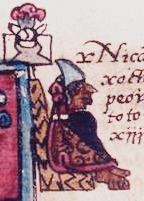 Nica
xoch
peor
toto
xiii